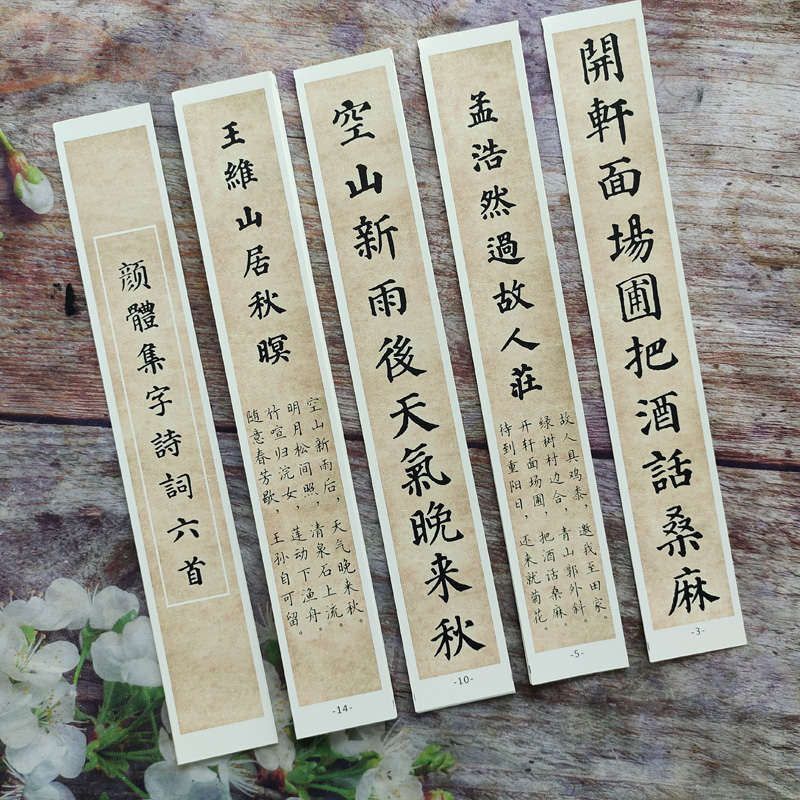 顔體集字詩詞六首
王維山居秋暝
空山新雨后，天气晚来秋。
明月松间照，清泉石上流。
竹喧归浣女，莲动下渔舟。
随意春芳歇，王孙自可留。
-14-
空山新雨後天氣晚来秋
-10-
孟浩然過故人莊
故人具鸡黍，邀我至田家。
绿树村边合，青山郭外斜。
开轩面场圃，把酒话桑麻。
待到重阳日，还来就菊花。
-5-
開軒面場圃把酒話桑麻
-3-